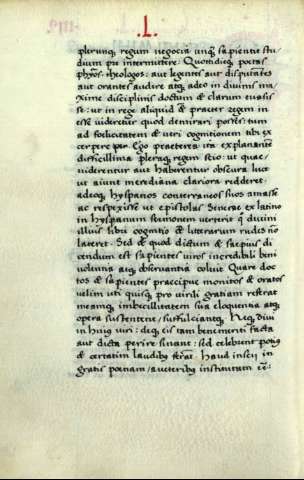 .L.
plerunq; regum negocia unq̃ sapientie stu
dium pre intermittere. Quottidieq; poetas
phyos theologos: aut legentes aut disputãtes
aut orantes audire atq; adeo in divinis ma
xime disciplinis doctum & clarum evasis
se: ut in rege aliquid & praeter regem in
esse videretur quod demirari posses: tum
ad foelicitatem & veri cognitionem tibi ex
cerpere par. Ego praeterea ita explanante
difficillima pleraq; regem scio: ut quae
viderentur aut haberentur obscura luce
ut aiunt meridiana clariora redderet
adeoq; hyspanos conterraneos suos amasse
ac respexisse ut epistolas Senecae ex latino
in hyspanum sermonem verterit q̃ divini
illius libri cognitio & literarum rudes nõ
lateret. Sed & quod dictum & saepius di
cendum est sapientes viros incredibili beni
volentia atq; observantia coluit Quare doc
tos & sapientes praecipue monitos & oratos
velim uti quisq; pro virili gloriam referat
meamq; imbecillitatem sua eloquentia atq;
opera sustentent, suffulciantq; Neq; divi
in huius viri: deq; eis tam benemeriti facta
aut dicta perire sinant: sed celebrent potius
& certatim laudibus ferãt. Haud inscii in
gratis poenam, a veteribus institutam eẽ: